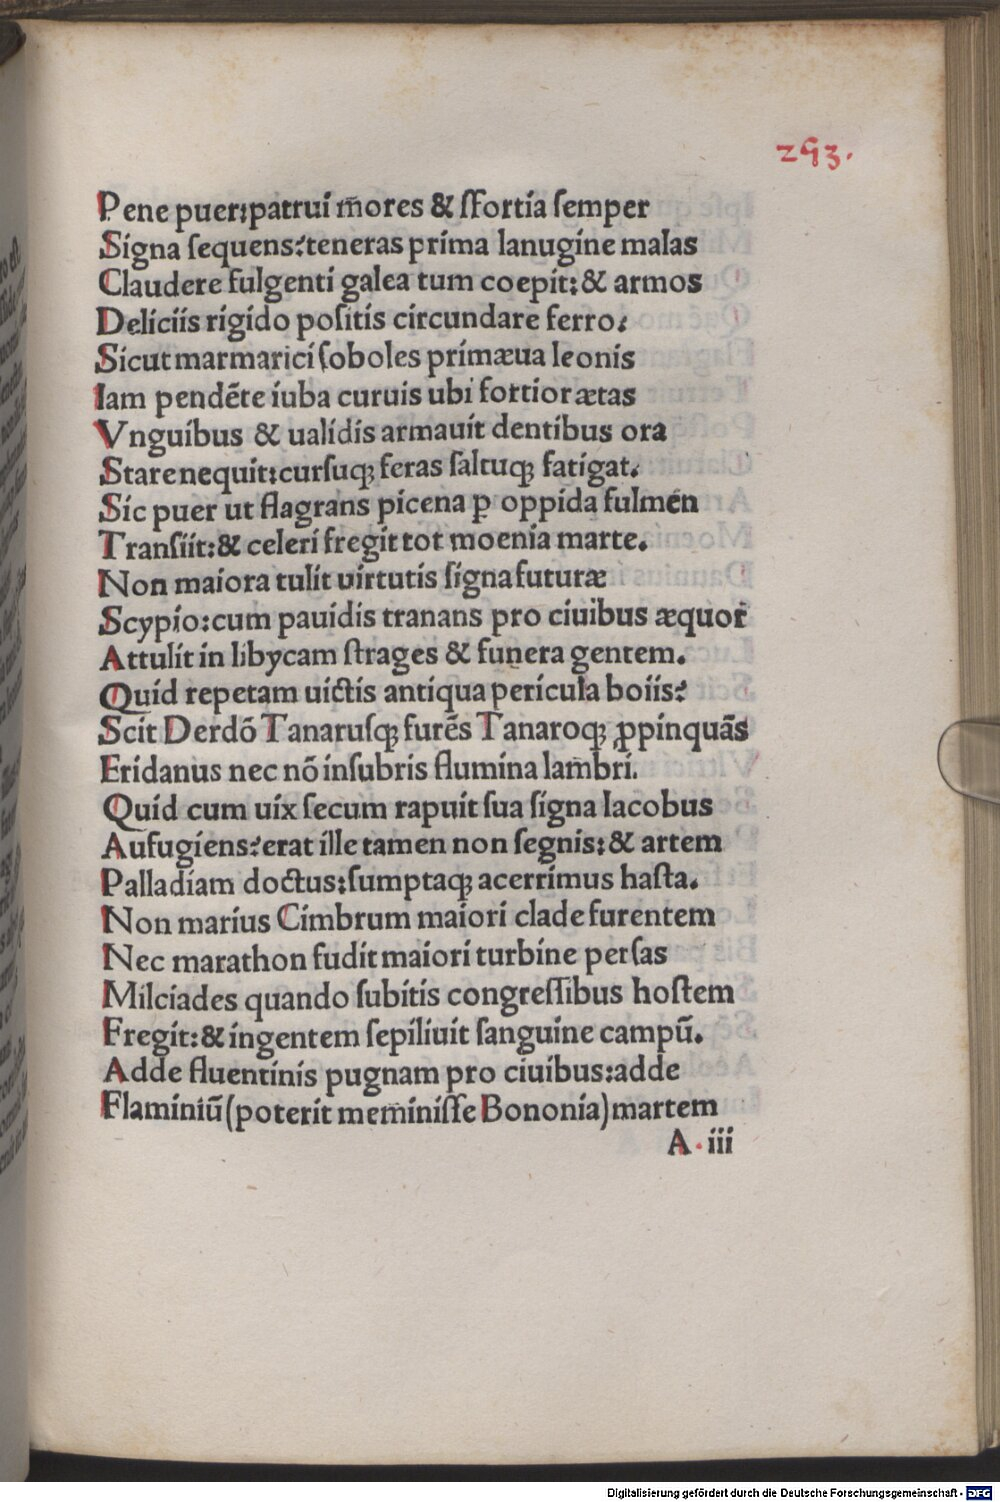 293.
Pene puer:patrui m̃ores & ſFortia ſemper
Signa ſequens:'teneras prima lanugine malas
Claudere fulgenti galea tum coepit:& armos
Deliciis rigido poſitis circundare ferro.'
Sicut marmarici ſoboles primæua leonis
Iam pendẽte iuba curuis ubi fortior ætas
Vnguibus & ualidis armauit dentibus ora
Stare nequit:curſuqꝫ feras ſaltuqꝫ fatigat.
Sic puer ut flagrans picena ꝑ oppida fulmen
Tranſiit:& celeri fregit tot moenia marte.
Non maiora tulit uirtutis ſigna futuræ
Scypio:cum pauidis tranans pro ciuibus æquor
Attulit in libycam ſtrages & funera gentem.
Quid repetam uictis antiqua pericula boiis:'
Scit Derdõ Tanaruſqꝫ furẽs Tanaroqꝫ ꝓpinquãs
Eridanus nec nõ inſubris flumina lambri.
Quid cum uix ſecum rapuit ſua ſigna Iacobus
Aufugiens:'erat ille tamen non ſegnis:& artem
Palladiam doctus:ſumptaqꝫ acerrimus haſta.
Non marius Cimbrum maiori clade furentem
Nec marathon fudit maiori turbine perſas
Milciades quando ſubitis congreſſibus hoſtem
Fregit:& ingentem ſepiliuit ſanguine campũ.
Adde fluentinis pugnam pro ciuibus:adde
Flaminiũ(poterit meminiſſe Bononia)martem
A.iii
Digitalisierung gefördert durch die Deutsche Forschungsgemeinschaft - DFG